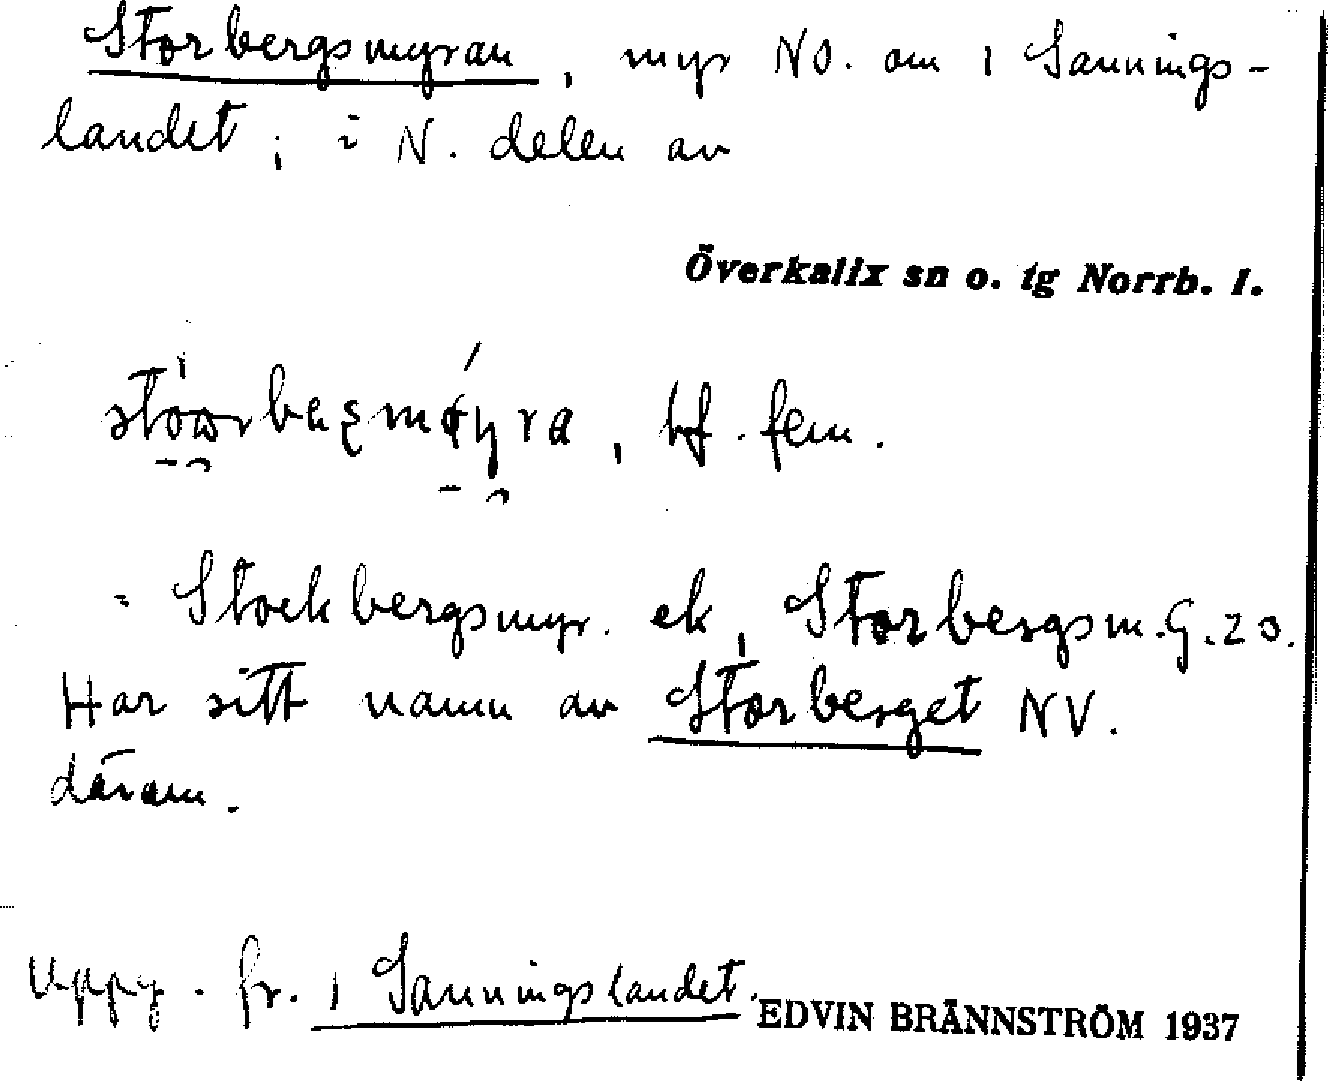 Storbergsmyran, myr NO. om 1 Sannings-
landet; i N. delen av
Överkalix sn o. tg Norrb. l.
bf. fem.
= Stockbergsmyr. ek, Storbergsm. G. 20.
Har sitt namn av Storberget NV.
därom.
Uppg. fr. 1 Sanningslandet.
EDVIN BRÄNNSTRÖM 1937